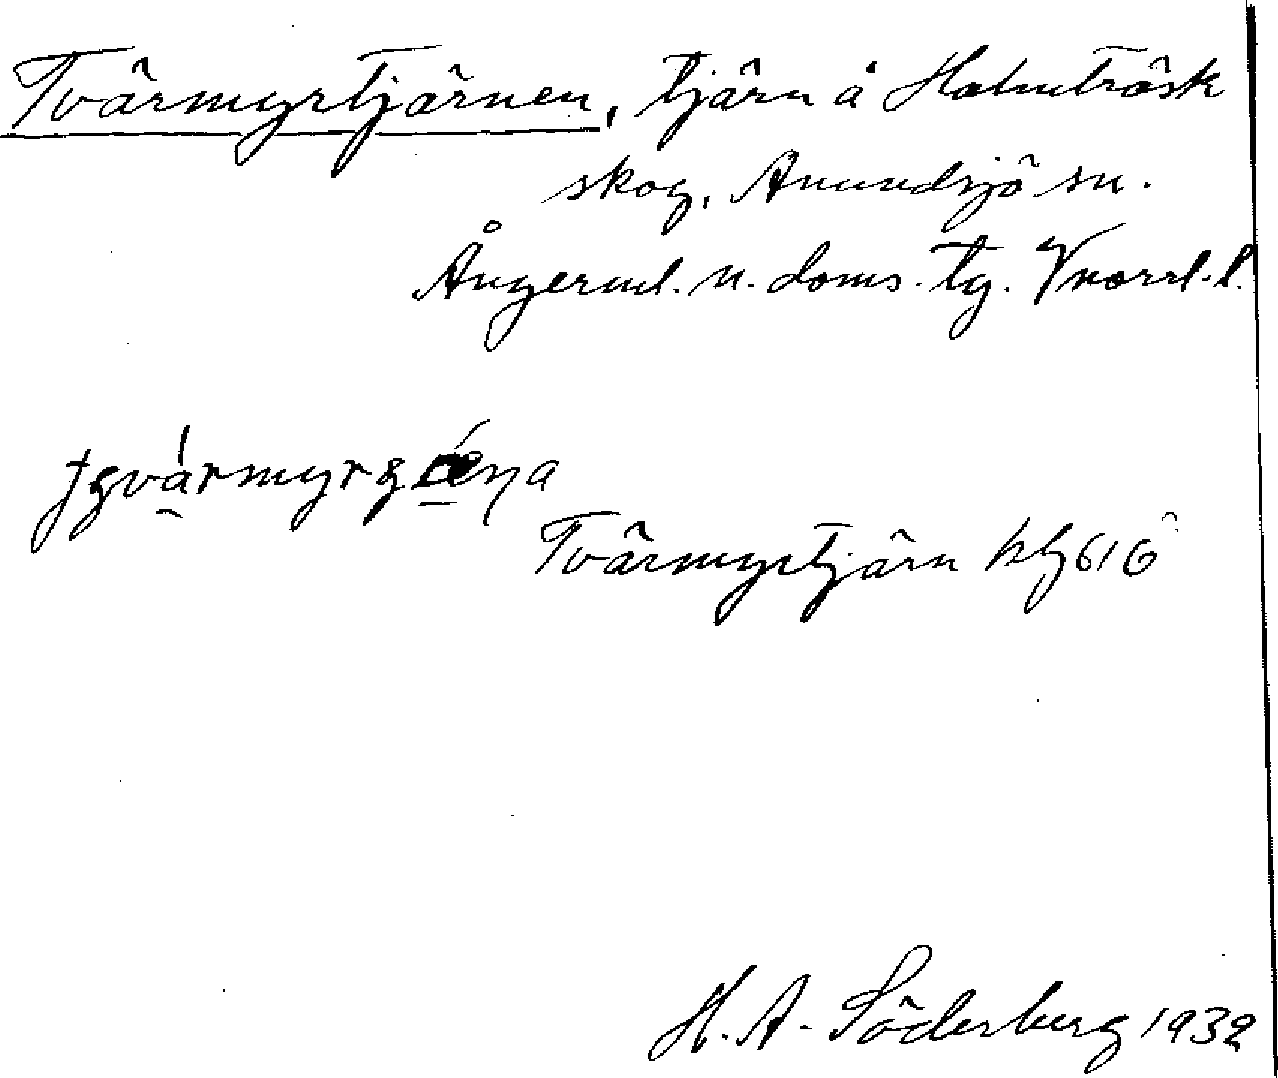 Tvärmyrtjärnen, tjärn å Holmträsk
skog, Anundsjö sn.
Ångerml. n. doms. tg. Vnorrl. l.
Tvärmyrtjärn
H. A. Söderberg 1932